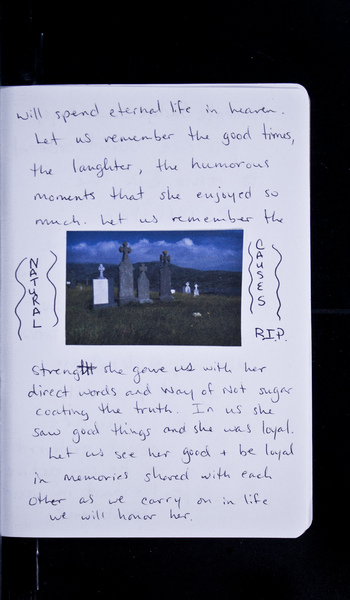 will spend eternal life in heaven.
Let us remember the good times,
the laughter, the humorous
moments that she enjoyed so
much. Let us remember the
NATURAL
CAUSES
R.I.P.
strength she gave us with her
direct words and way of not sugar
coating the truth. In us she
saw good things and she was loyal.
Let us see her good + be loyal
in memories shared with each
other as we carry on in life
we will honor her.